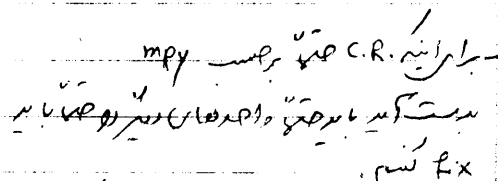 برای اینکه C.R. حتماً برحسب mpy
بدست آید باید حتماً واحدهای دیگر را حتماً باید
fix کنیم.